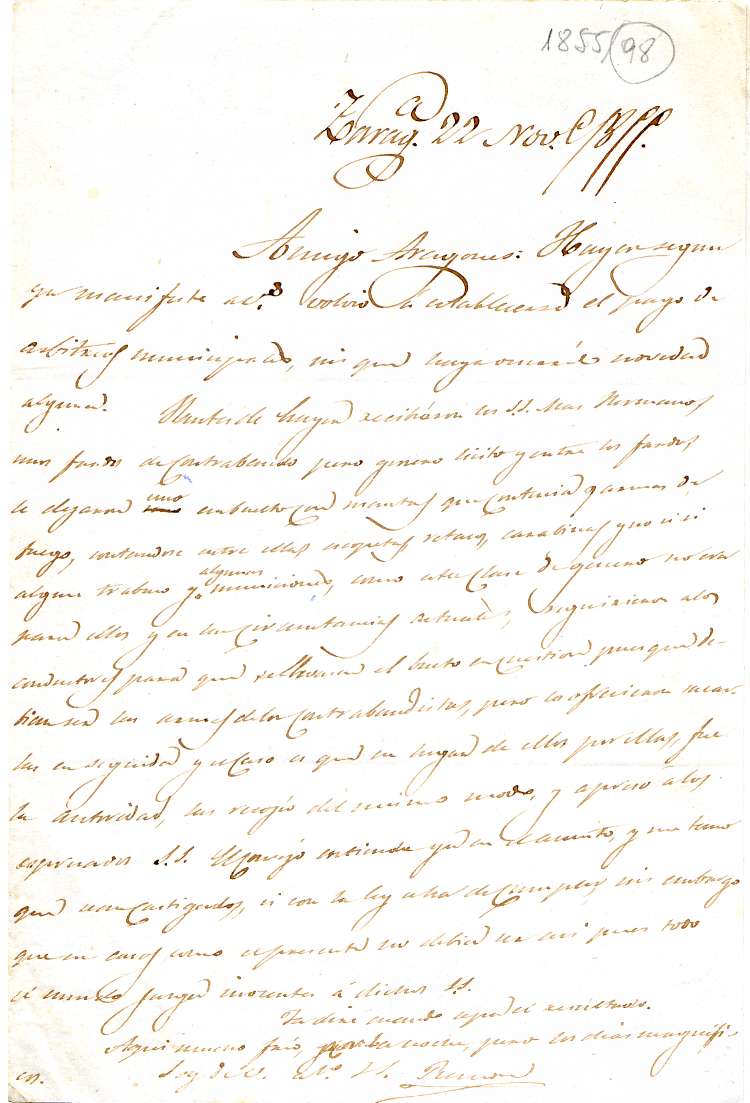 1855/98
Zarag.a 22 Nov.e 1855.
Amigo Aragones: Hayer segun
que manifeste a V.d volvió á establecerse el pago de
arbitrios municipales, sin que haya ocurrido novedad
alguna. Antes de hayer recibieron los S.S. Mas Hermanos
unos fardos de contrabando pero genero licito y entre los fardos
le dejaron uno embuelto con mantas que contenia armas de
fuego, contandose entre ellas escopetas retacos, carabinas y no sé si
algun trabuco y algunas municiones, como esta clase de genero no era
para ellos y en las circunstancias actuales, requirieron a los
conductores para que se llevasen el bulto en cuestion pues que de-
bian ser las armas de los contrabandistas, pero los ofrecieron sacar-
las en seguida y el caso es que en lugar de ellos por ellas, fue
la autoridad, las recogió del mismo modo, y apreso a los
espresados S.S. El Consejo entiende ya en el asunto, y me temo
que sean castigados, si con la ley se ha de cumplir, sin embargo
que en casos como el presente no debia ser asi pues todo
el mundo juzga inocentes á dichos SS.
Ya diré cuando sepa el resultado.
Aqui mucho frio, por la noche, pero los dias magnifi-
cos. Soy de V. af.o S.S. Ramon